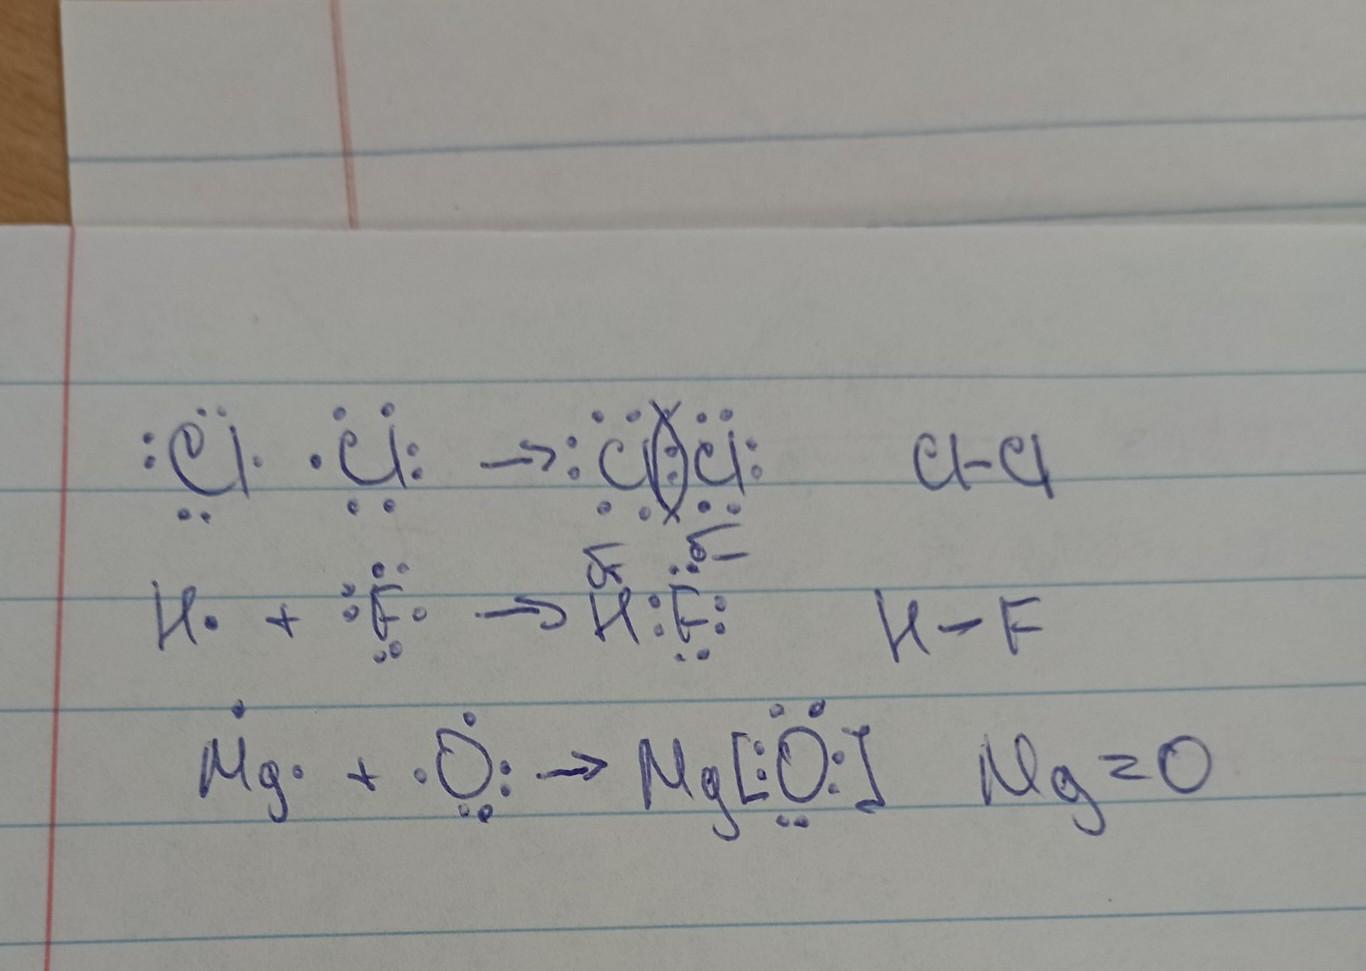 :C̈l· ·C̈l: → :C̈l:C̈l: Cl-Cl
H· + :F̈· → H:F̈: H-F
δ+ δ-
Mg· + ·Ö: → Mg[:Ö:] Mg=O